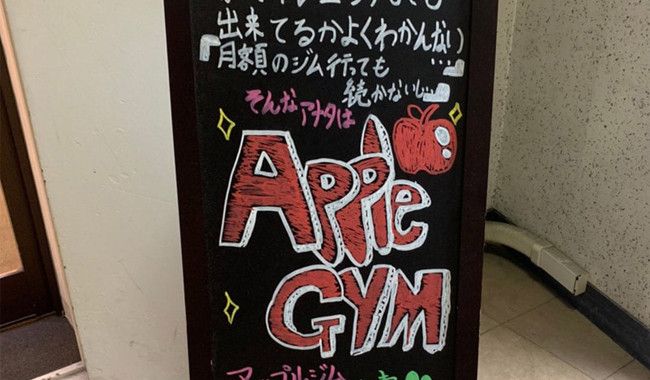 出来てるかよくわかんない…」
「月額のジム行っても
続かないし…」
そんなアナタは
Apple
GYM
アップルジム